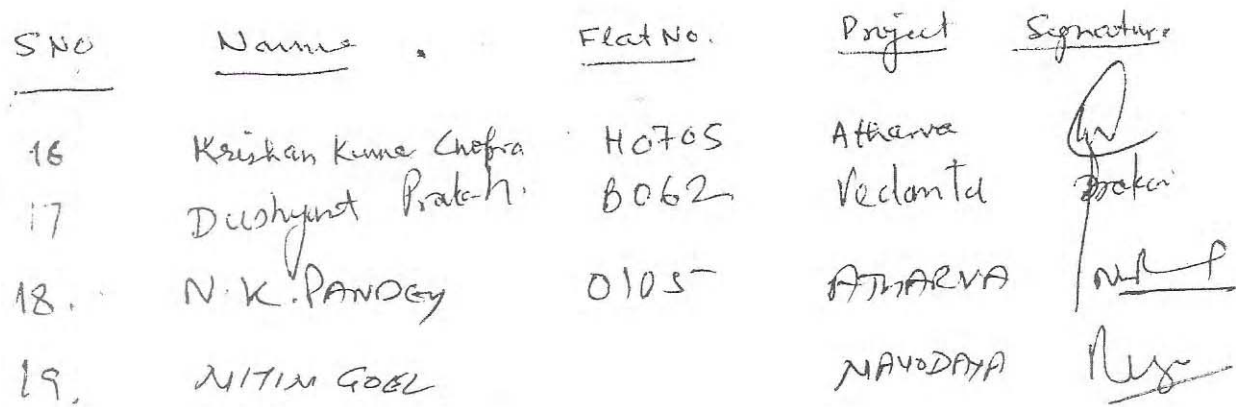 S NO Name . Flat No. Project Signature
16 Krishan Kumar Chopra H0705 Atharva
17 Dushyant B062 Vedanta
18. N.K. PANDEY 0105 ATHARVA
19. NITIN GOEL NAVODAYA